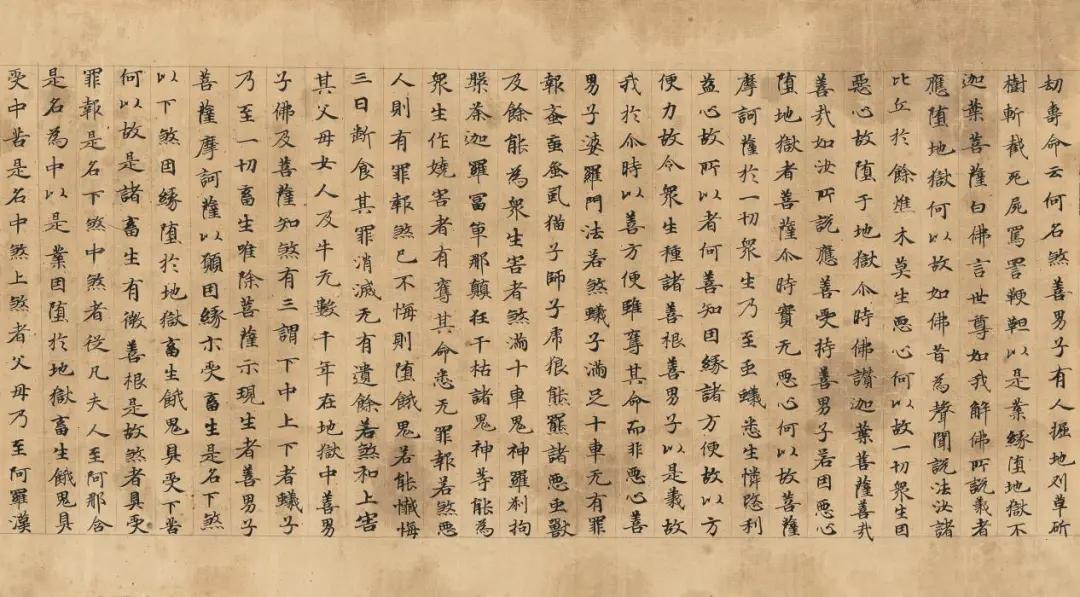 劫夀命云何名煞善男子有人掘地刈草斫
樹斬截死屍罵詈鞭靼以是業緣堕地獄不
迦葉菩薩白佛言世尊如我解佛所說義者
應堕地獄何以故如佛昔為聲聞說法汝諸
比丘於餘燋木莫生惡心何以故一切衆生因
惡心故堕于地獄尒時佛讚迦葉菩薩善哉
善哉如汝所說應善受持善男子若因惡心
堕地獄者菩薩尒時實无惡心何以故菩薩
摩訶薩於一切衆生乃至虫蟻悉生憐愍利
益心故所以者何善知因緣諸方便故以方
便力故令衆生種諸善根善男子以是義故
我於尒時以善方便雖奪其命而非惡心善
男子婆羅門法若煞蟻子滿足十車无有罪
報蚉䖟蚤虱猫子師子虎狼熊羆諸惡虫獸
及餘能為衆生害者煞滿十車鬼神羅刹拘
槃荼迦羅冨單那顛狂干枯諸鬼神等能為
衆生作嬈害者有奪其命悉无罪報若煞惡
人則有罪報煞已不悔則堕餓鬼若能懺悔
三日斷食其罪消滅无有遺餘若煞和上害
其父母女人及牛无數千年在地獄中善男
子佛及菩薩知煞有三謂下中上下者蟻子
乃至一切畜生唯除菩薩示現生者善男子
菩薩摩訶薩以願因緣示受畜生是名下煞
以下煞因緣堕於地獄畜生餓鬼具受下苦
何以故是諸畜生有微善根是故煞者具受
罪報是名下煞中煞者從凡夫人至阿那含
是名為中以是業因堕於地獄畜生餓鬼具
受中苦是名中煞上煞者父母乃至阿羅漢